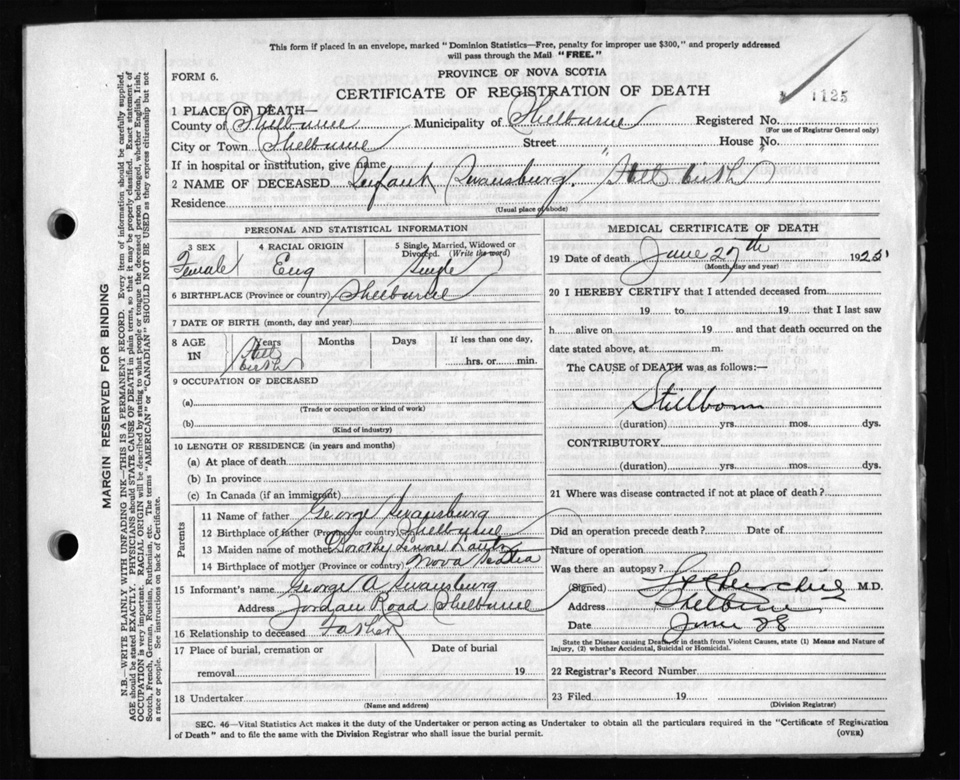 This form if placed in an envelope, marked "Dominion Statistics—Free, penalty for improper use $300," and properly addressed
will pass through the Mail "FREE."
FORM 6.
PROVINCE OF NOVA SCOTIA
CERTIFICATE OF REGISTRATION OF DEATH
1125
1 PLACE OF DEATH—
County of Shelburne Municipality of Shelburne Registered No.
(For use of Registrar General only)
City or Town Shelburne Street " House No.
If in hospital or institution, give name
2 NAME OF DECEASED Infant Swansburg. Still birth
Residence
(Usual place of abode)
PERSONAL AND STATISTICAL INFORMATION
3 SEX 4 RACIAL ORIGIN 5 Single, Married, Widowed or
Divorced. (Write the word)
Female Eng Single
6 BIRTHPLACE (Province or country) Shelburne
7 DATE OF BIRTH (month, day and year)
8 AGE IN Years Months Days If less than one day,
Still birth hrs. or min.
9 OCCUPATION OF DECEASED
(a)
(Trade or occupation or kind of work)
(b)
(Kind of industry)
10 LENGTH OF RESIDENCE (in years and months)
(a) At place of death
(b) In province
(c) In Canada (if an immigrant)
Parents
11 Name of father George Swansburg
12 Birthplace of father (Province or country) Shelburne
13 Maiden name of mother Dorothy
14 Birthplace of mother (Province or country) Nova Scotia
15 Informant's name George A Swansburg
Address Jordan Road Shelburne
16 Relationship to deceased Father
17 Place of burial, cremation or Date of burial
removal 19
18 Undertaker
(Name and address)
MEDICAL CERTIFICATE OF DEATH
19 Date of death June 27th 1925
(Month, day and year)
20 I HEREBY CERTIFY that I attended deceased from
19 to 19 that I last saw
h alive on 19 and that death occurred on the
date stated above, at m.
The CAUSE of DEATH was as follows:—
Stillborn
(duration) yrs. mos. dys.
CONTRIBUTORY
(duration) yrs. mos. dys.
21 Where was disease contracted if not at place of death?
Did an operation precede death? Date of
Nature of operation
Was there an autopsy?
(Signed) Churchill M.D.
Address Shelburne
Date June 28
State the Disease causing Death, or in death from Violent Causes, state (1) Means and Nature of
Injury, (2) whether Accidental, Suicidal or Homicidal.
22 Registrar's Record Number
23 Filed 19
(Division Registrar)
SEC. 46—Vital Statistics Act makes it the duty of the Undertaker or person acting as Undertaker to obtain all the particulars required in the "Certificate of Registration
of Death" and to file the same with the Division Registrar who shall issue the burial permit.
(OVER)
MARGIN RESERVED FOR BINDING
N.B.—WRITE PLAINLY WITH UNFADING INK—THIS IS A PERMANENT RECORD. Every item of information should be carefully supplied.
AGE should be stated EXACTLY. PHYSICIANS should STATE CAUSE OF DEATH in plain terms, so that it may be properly classified. Exact statement of
OCCUPATION is very important. RACIAL ORIGIN will be described by stating to what people or tongue the deceased person belonged, whether English, Irish,
Scotch, French, German, Russian, Ruthenian, etc. The terms "AMERICAN" or "CANADIAN" SHOULD NOT BE USED as they express citizenship but not
a race or people. See instructions on back of Certificate.